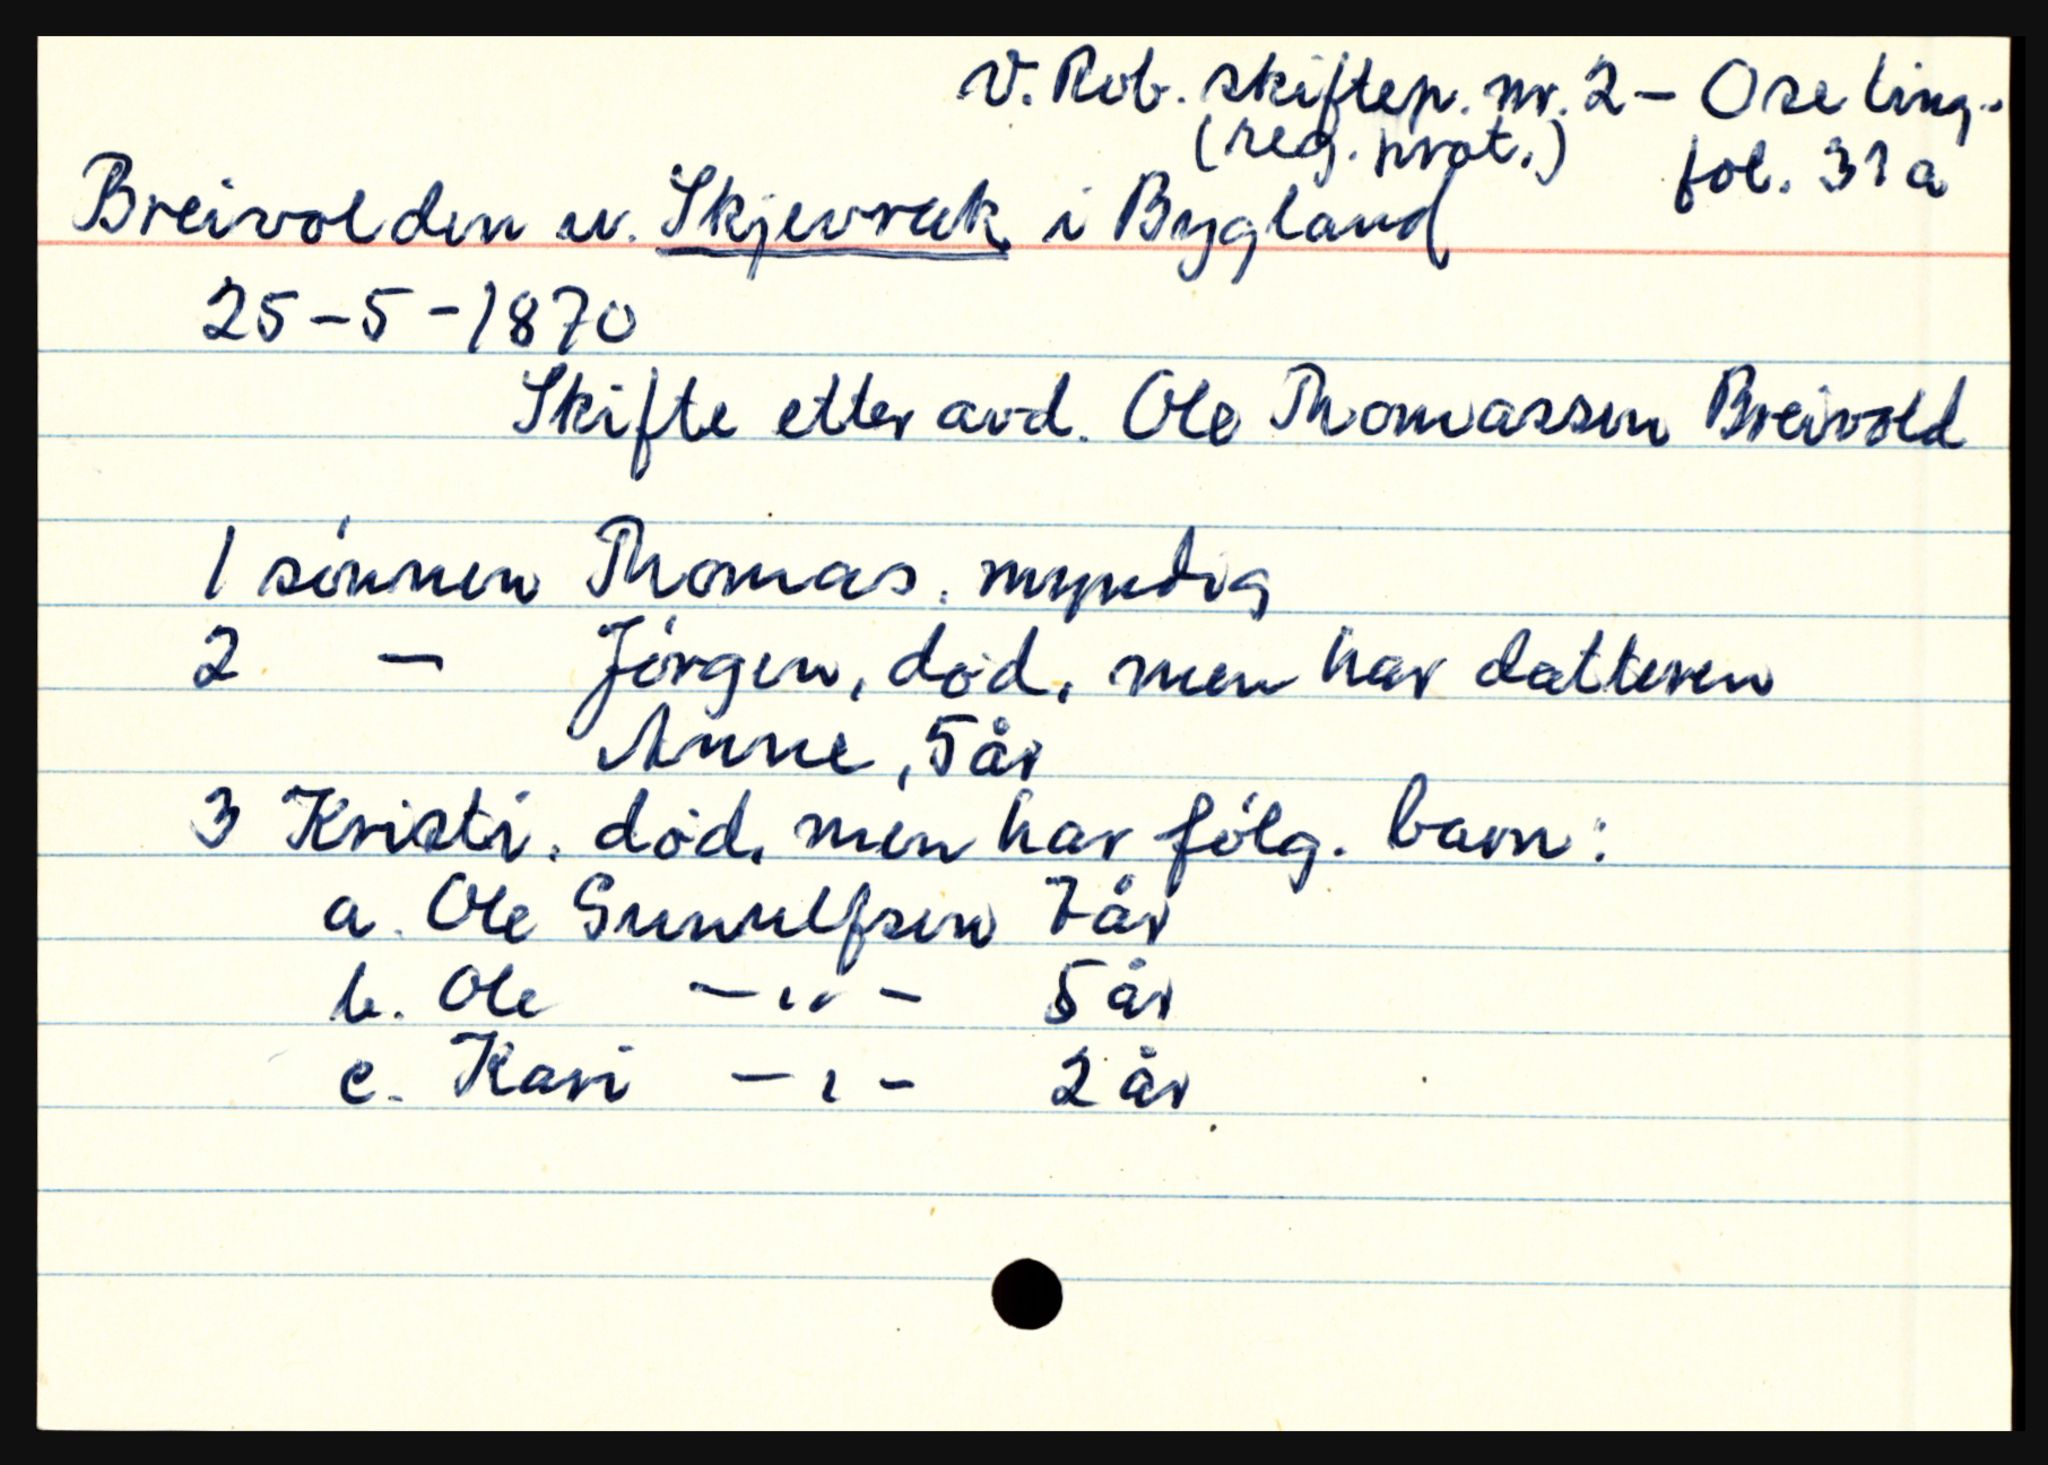 V. Rob. skiftep. nr. 2 – Ose ting.
(reg. prot.) fol. 31a
Breivolden u. Skjevrak i Bygland
25-5-1870
Skifte etter avd. Ole Thomassen Breivold
1 sönnen Thomas. myndig
2 — Jörgen, död, men har datteren
Anne, 5 år
3 Kristi. död, men har fölg. barn:
a. Ole Gunulfsen 7 år
b. Ole —〃— 5 år
c. Kari —〃— 2 år